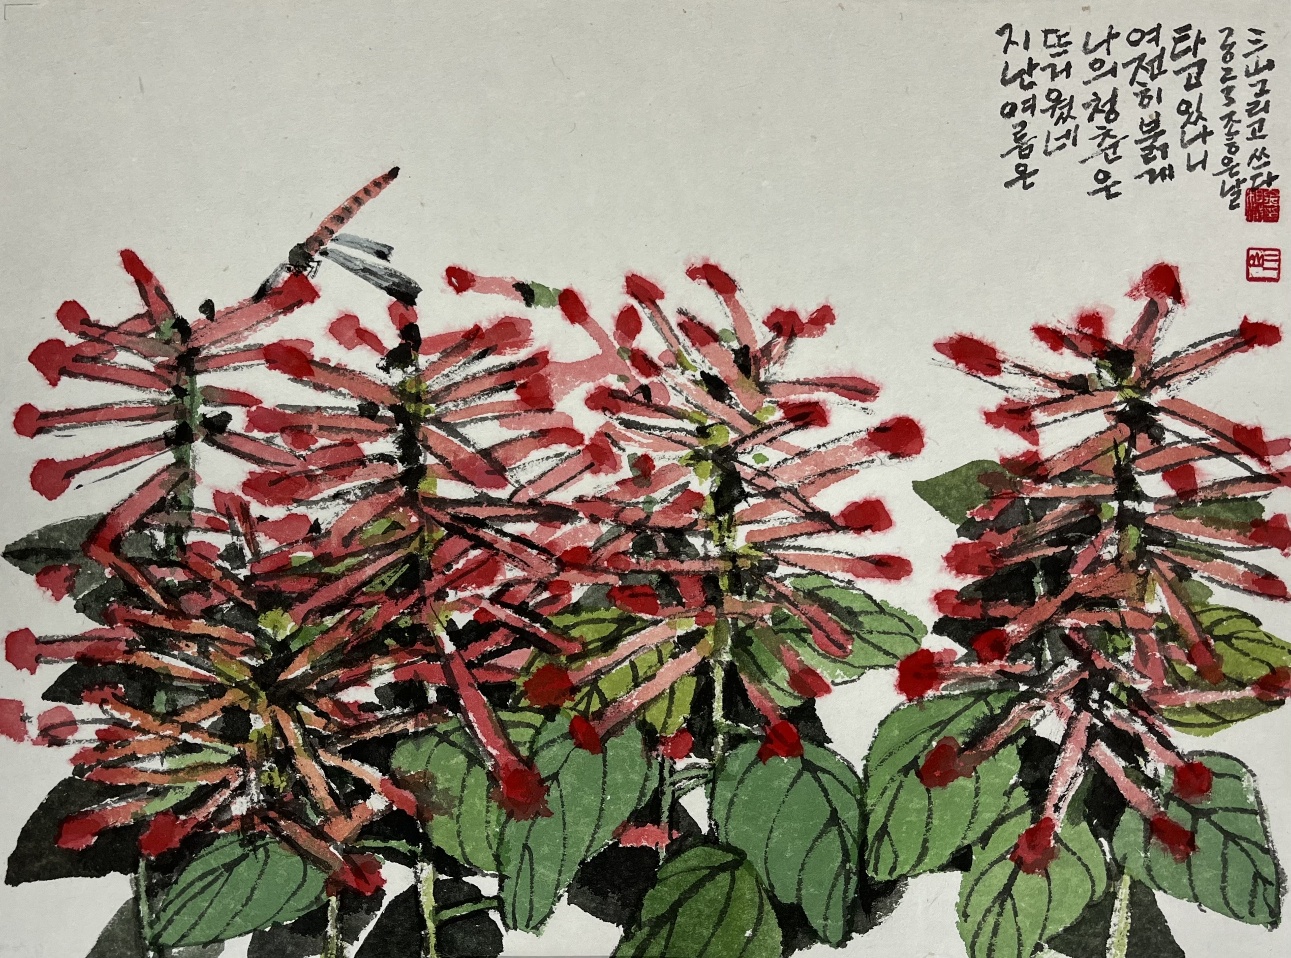 지난여름은
뜨거웠네
나의청춘은
여전히붉게
타고있나니
2023좋은날
三山그리고쓰다